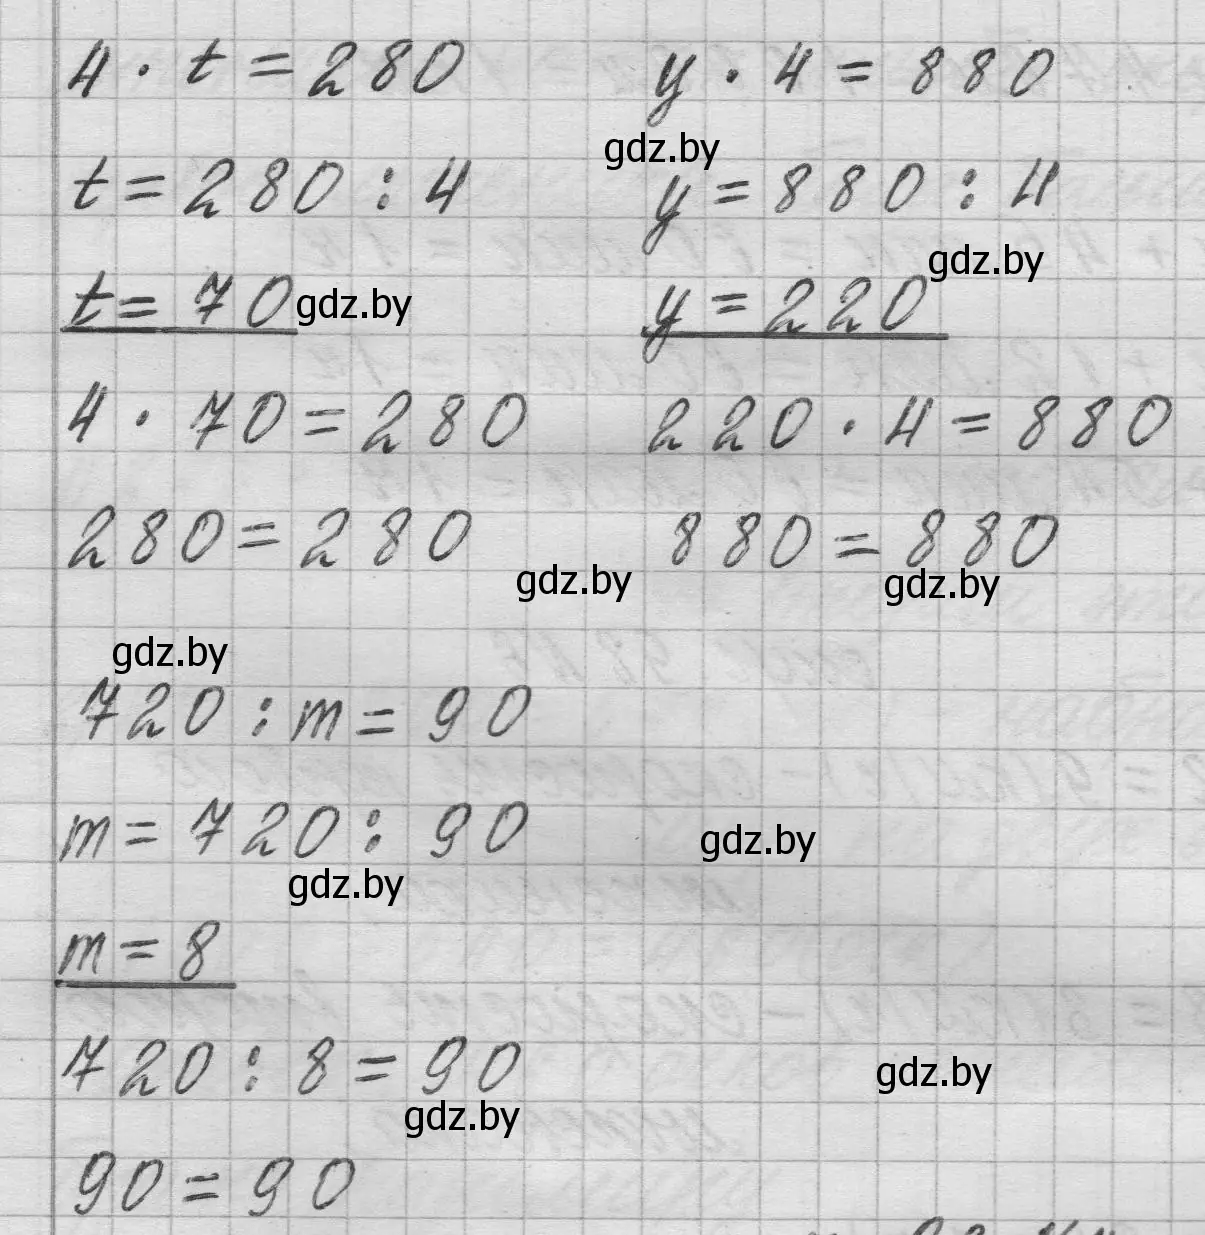 4 · t = 280
t = 280 : 4
t = 70
4 · 70 = 280
280 = 280
y · 4 = 880
y = 880 : 4
y = 220
220 · 4 = 880
880 = 880
gdz.by
gdz.by
gdz.by
gdz.by
gdz.by
gdz.by
720 : m = 90
m = 720 : 90
m = 8
720 : 8 = 90
90 = 90
gdz.by
gdz.by
gdz.by
gdz.by